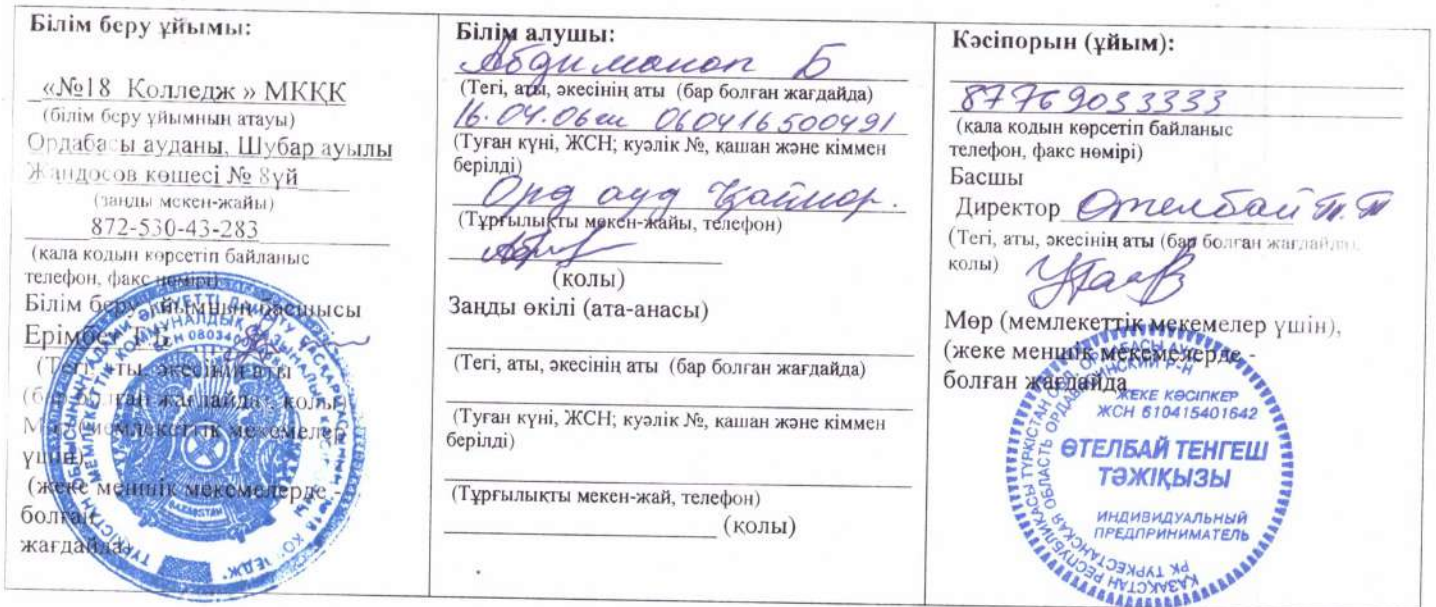 Білім беру ұйымы:
«№18 Колледж » МКҚК
(білім беру ұйымның атауы)
Ордабасы ауданы, Шубар ауылы
Жандосов көшесі № 8үй
(заңды мекен-жайы)
872-530-43-283
(қала кодын көрсетіп байланыс
телефон, факс нөмірі)
Білім беру ұйымның басшысы
Ерімбет Г.Б
(Тегі, аты, әкесінің аты
(бар болған жағдайда), қолы)
Мөр (мемлекеттік мекемелер
үшін),
(жеке меншік мекемелерде -
болған
жағдайда)
Білім алушы:
Абдиманап Б
(Тегі, аты, әкесінің аты (бар болған жағдайда)
16.04.06ж 060416500491
(Туған күні, ЖСН; куәлік №, қашан және кіммен
берілді)
Орд ауд Қайнар.
(Тұрғылықты мекен-жайы, телефон)
(қолы)
Заңды өкілі (ата-анасы)
(Тегі, аты, әкесінің аты (бар болған жағдайда)
(Туған күні, ЖСН; куәлік №, қашан және кіммен
берілді)
(Тұрғылықты мекен-жай, телефон)
(қолы)
Кәсіпорын (ұйым):
87769033333
(қала кодын көрсетіп байланыс
телефон, факс нөмірі)
Басшы
Директор Өтелбай Т.Т
(Тегі, аты, әкесінің аты (бар болған жағдайда),
қолы)
Мөр (мемлекеттік мекемелер үшін),
(жеке меншік мекемелерде -
болған жағдайда
ЖЕКЕ КӘСІПКЕР
ЖСН 610415401642
ӨТЕЛБАЙ ТЕНГЕШ
ТӘЖІҚЫЗЫ
ИНДИВИДУАЛЬНЫЙ
ПРЕДПРИНИМАТЕЛЬ